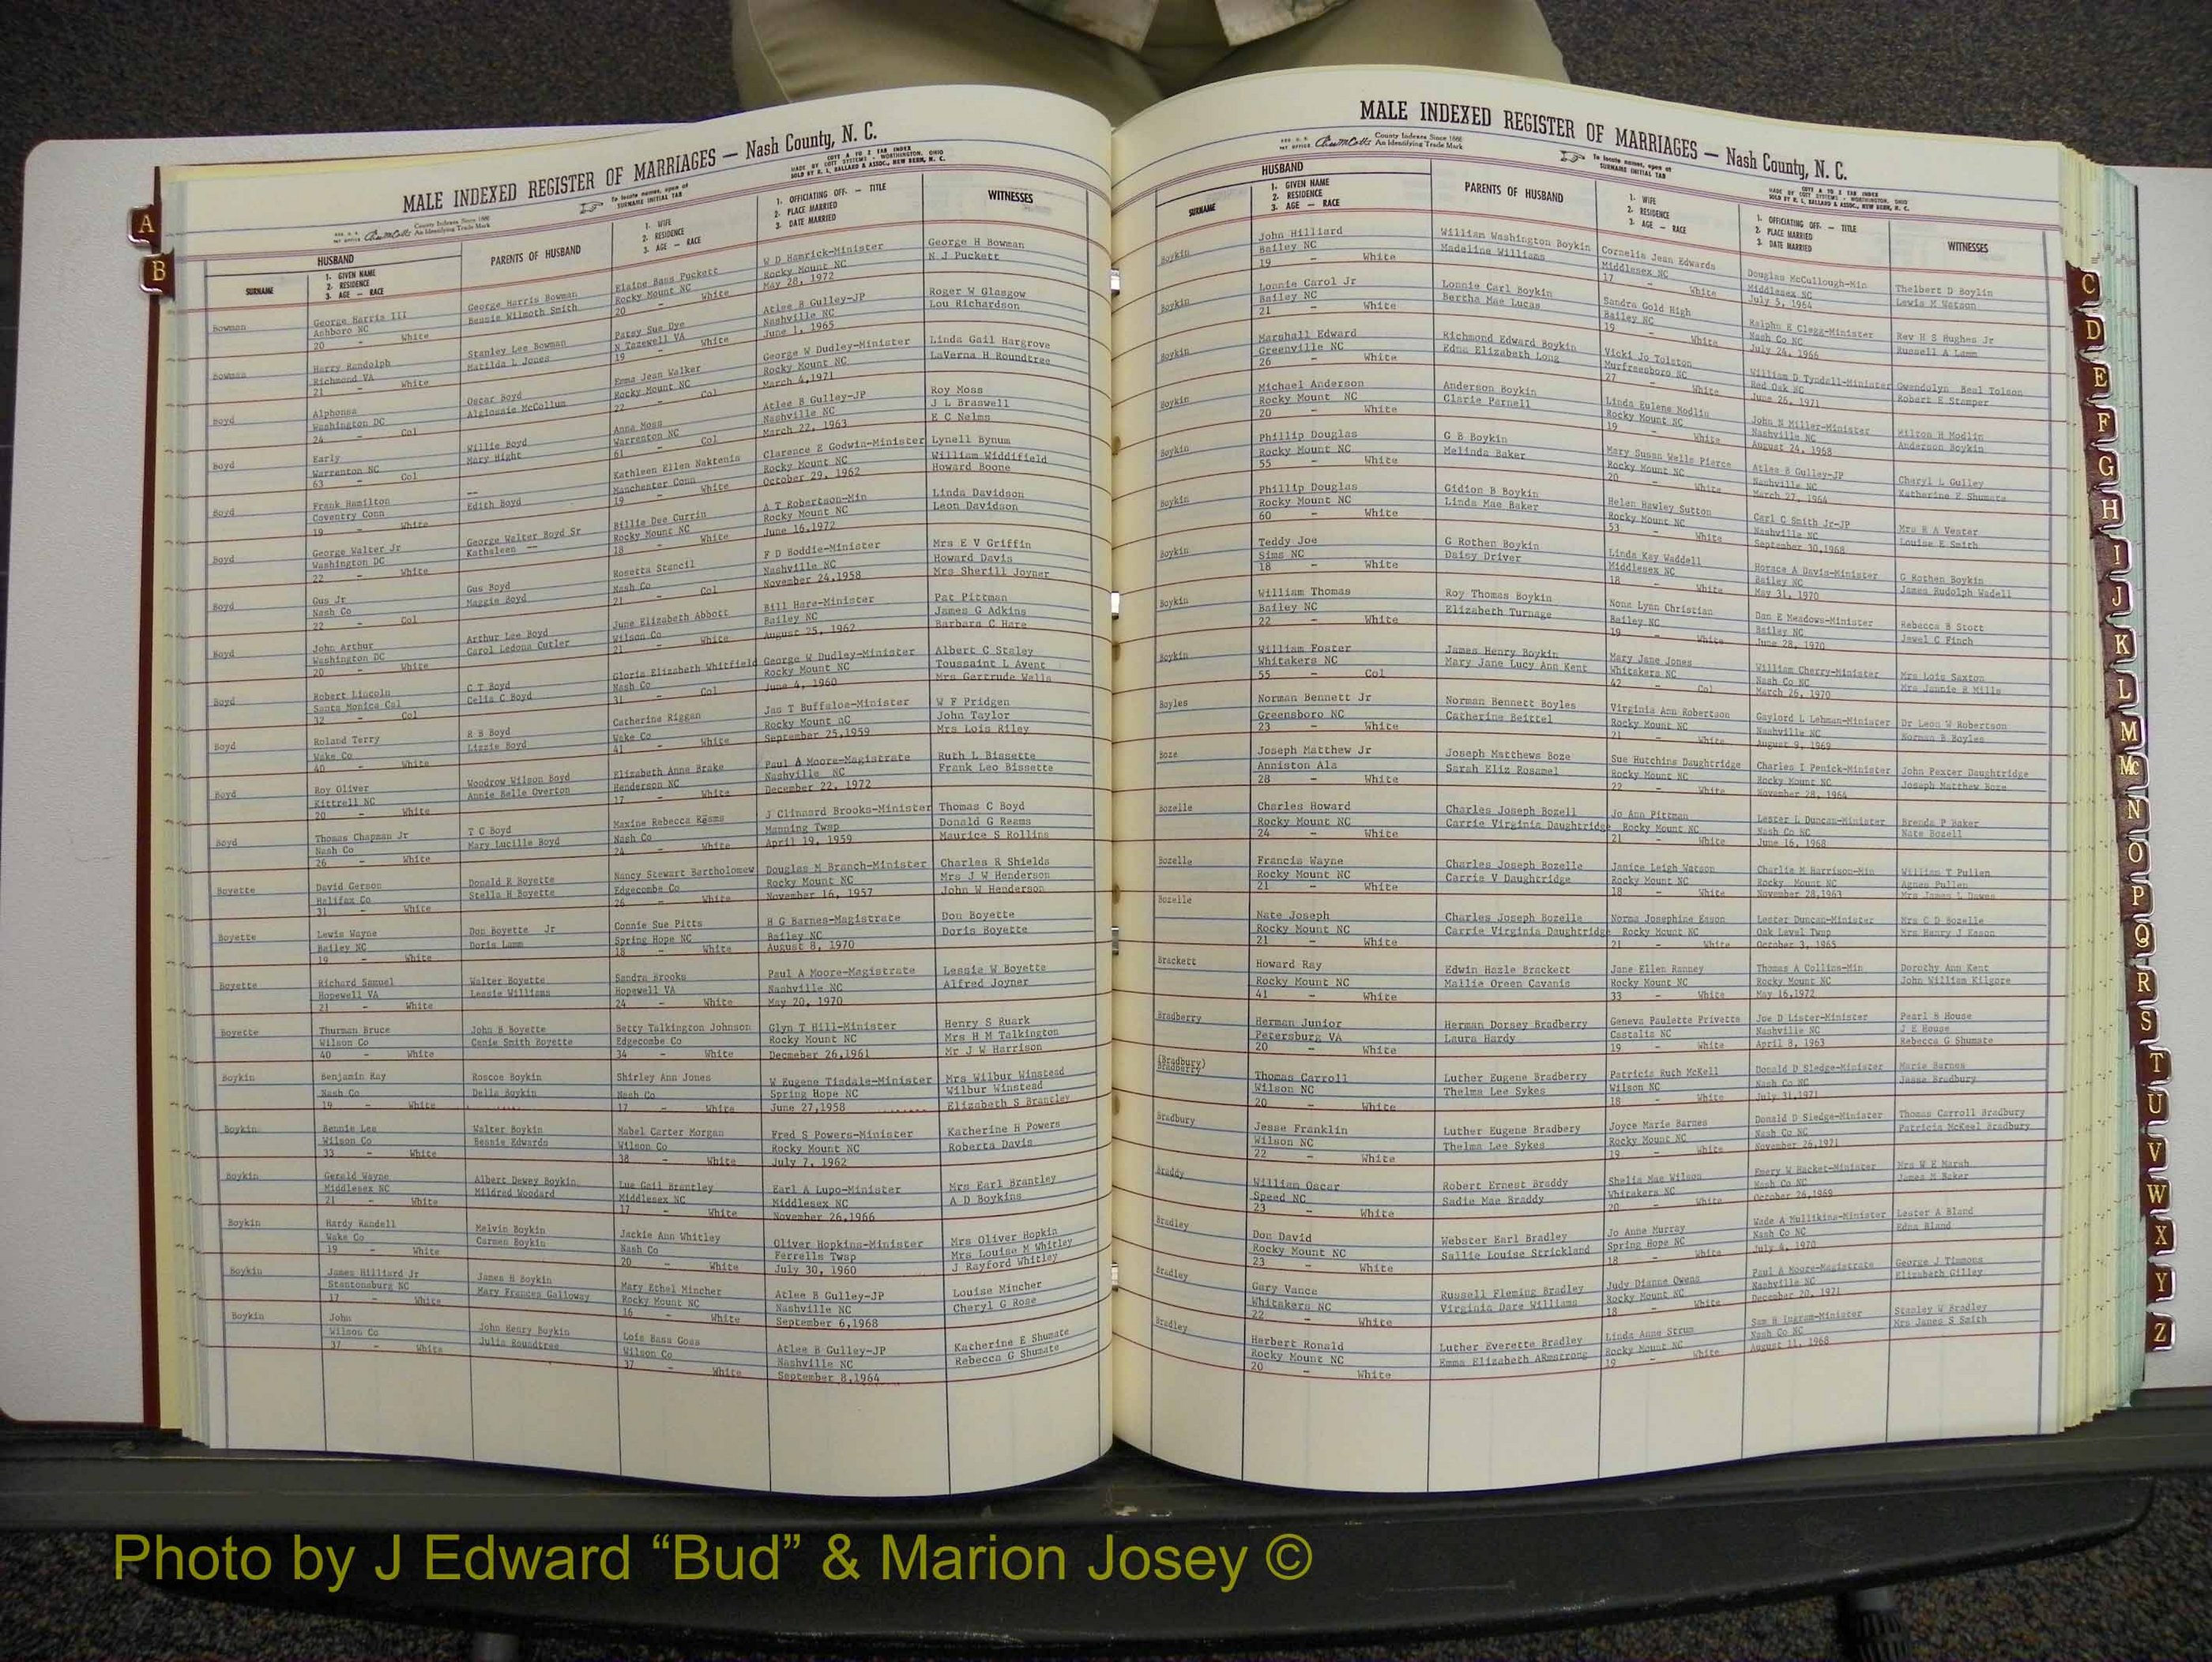 MALE INDEXED REGISTER OF MARRIAGES — Nash County, N. C.
County Indexes Since 1888
An Identifying Trade Mark
To locate names, open at
SURNAME INITIAL TAB
COTT A TO Z TAB INDEX
MADE BY COTT SYSTEMS - WORTHINGTON, OHIO
SOLD BY R. L. BALLARD & ASSOC., NEW BERN, N. C.
HUSBAND
SURNAME
1. GIVEN NAME
2. RESIDENCE
3. AGE — RACE
PARENTS OF HUSBAND
1. WIFE
2. RESIDENCE
3. AGE — RACE
1. OFFICIATING OFF. — TITLE
2. PLACE MARRIED
3. DATE MARRIED
WITNESSES
Bowman George Harris III George Harris Bowman Elaine Bass Puckett W D Hamrick-Minister George H Bowman
Ashboro NC Bessie Wilmoth Smith Rocky Mount NC Rocky Mount NC N J Puckett
20 - White 20 - White May 28, 1972
Bowman Harry Randolph Stanley Lee Bowman Patsy Sue Dye Atlee B Gulley-JP Roger W Glasgow
Richmond VA Matilda L Jones N Tazewell VA Nashville NC Lou Richardson
21 - White 19 - White June 1, 1965
Boyd Alphonsa Oscar Boyd Emma Jean Walker George W Dudley-Minister Linda Gail Hargrove
Washington DC Alglossie McCollum Rocky Mount NC Rocky Mount NC LaVerna H Roundtree
24 - Col 22 - Col March 4,1971
Boyd Early Willie Boyd Anna Moss Atlee B Gulley-JP Roy Moss
Warrenton NC Mary Hight Warrenton NC Nashville NC J L Braswell
63 - Col 61 - Col March 22, 1963 E C Nelms
Boyd Frank Hamilton -- Kathleen Ellen Naktenis Clarence E Godwin-Minister Lynell Bynum
Coventry Conn Edith Boyd Manchester Conn Rocky Mount NC William Widdifield
19 - White 19 - White October 29, 1962 Howard Boone
Boyd George Walter Jr George Walter Boyd Sr Billie Dee Currin A T Robertson-Min Linda Davidson
Washington DC Kathaleen -- Rocky Mount NC Rocky Mount NC Leon Davidson
22 - White 18 - White June 16,1972
Boyd Gus Jr Gus Boyd Rosetta Stancil F D Boddie-Minister Mrs E V Griffin
Nash Co Maggie Boyd Nash Co Nashville NC Howard Davis
22 - Col 21 - Col November 24,1958 Mrs Sherill Joyner
Boyd John Arthur Arthur Lee Boyd June Elizabeth Abbott Bill Hare-Minister Pat Pittman
Washington DC Carol Ledona Cutler Wilson Co Bailey NC James G Adkins
20 - White 21 - White August 25, 1962 Barbara C Hare
Boyd Robert Lincoln C T Boyd Gloria Elizabeth Whitfield George W Dudley-Minister Albert C Staley
Santa Monica Cal Celia C Boyd Nash Co Rocky Mount NC Toussaint L Avent
32 - Col 31 - Col June 4, 1960 Mrs Gertrude Wells
Boyd Roland Terry R B Boyd Catherine Riggan Jas T Buffaloe-Minister W F Pridgen
Wake Co Lizzie Boyd Wake Co Rocky Mount nC John Taylor
40 - White 41 - White September 25,1959 Mrs Lois Riley
Boyd Roy Oliver Woodrow Wilson Boyd Elizabeth Anne Brake Paul A Moore-Magistrate Ruth L Bissette
Kittrell NC Annie Belle Overton Henderson NC Nashville NC Frank Leo Bissette
20 - White 17 - White December 22, 1972
Boyd Thomas Chapman Jr T C Boyd Maxine Rebecca Reams J Clinnard Brooks-Minister Thomas C Boyd
Nash Co Mary Lucille Boyd Nash Co Manning Twsp Donald G Reams
26 - White 24 - White April 19, 1959 Maurice S Rollins
Boyette David Gerson Donald R Boyette Nancy Stewart Bartholomew Douglas M Branch-Minister Charles R Shields
Halifax Co Stella H Boyette Edgecombe Co Rocky Mount NC Mrs J W Henderson
31 - White 26 - White November 16, 1957 John W Henderson
Boyette Lewis Wayne Don Boyette Jr Connie Sue Pitts H G Barnes-Magistrate Don Boyette
Bailey NC Doris Lamm Spring Hope NC Bailey NC Doris Boyette
19 - White 18 - White August 8, 1970
Boyette Richard Samuel Walter Boyette Sandra Brooks Paul A Moore-Magistrate Lessie W Boyette
Hopewell VA Lessie Williams Hopewell VA Nashville NC Alfred Joyner
21 - White 24 - White May 20, 1970
Boyette Thurman Bruce John B Boyette Betty Talkington Johnson Glyn T Hill-Minister Henry S Ruark
Wilson Co Canie Smith Boyette Edgecombe Co Rocky Mount NC Mrs H M Talkington
40 - White 34 - White Decmeber 26,1961 Mr J W Harrison
Boykin Benjamin Ray Roscoe Boykin Shirley Ann Jones W Eugene Tisdale-Minister Mrs Wilbur Winstead
Nash Co Della Boykin Nash Co Spring Hope NC Wilbur Winstead
19 - White 17 - White June 27,1958 Elizabeth S Brantley
Boykin Bennie Lee Walter Boykin Mabel Carter Morgan Fred S Powers-Minister Katherine H Powers
Wilson Co Bessie Edwards Wilson Co Rocky Mount NC Roberta Davis
33 - White 38 - White July 7, 1962
Boykin Gerald Wayne Albert Dewey Boykin Lue Gail Brantley Earl A Lupo-Minister Mrs Earl Brantley
Middlesex NC Mildred Woodard Middlesex NC Middlesex NC A D Boykins
21 - White 17 - White November 26,1966
Boykin Hardy Randell Melvin Boykin Jackie Ann Whitley Oliver Hopkins-Minister Mrs Oliver Hopkin
Wake Co Carmen Boykin Nash Co Ferrells Twsp Mrs Louise M Whitley
19 - White 20 - White July 30, 1960 J Rayford Whitley
Boykin James Hilliard Jr James H Boykin Mary Ethel Mincher Atlee B Gulley-JP Louise Mincher
Stantonsburg NC Mary Frances Galloway Rocky Mount NC Nashville NC Cheryl G Rose
17 - White 16 - White September 6,1968
Boykin John John Henry Boykin Lois Bass Goss Atlee B Gulley-JP Katherine E Shumate
Wilson Co Julia Roundtree Wilson Co Nashville NC Rebecca G Shumate
37 - White 37 - White September 8,1964
MALE INDEXED REGISTER OF MARRIAGES — Nash County, N. C.
County Indexes Since 1888
An Identifying Trade Mark
To locate names, open at
SURNAME INITIAL TAB
COTT A TO Z TAB INDEX
MADE BY COTT SYSTEMS - WORTHINGTON, OHIO
SOLD BY R. L. BALLARD & ASSOC., NEW BERN, N. C.
HUSBAND
SURNAME
1. GIVEN NAME
2. RESIDENCE
3. AGE — RACE
PARENTS OF HUSBAND
1. WIFE
2. RESIDENCE
3. AGE — RACE
1. OFFICIATING OFF. — TITLE
2. PLACE MARRIED
3. DATE MARRIED
WITNESSES
Boykin John Hilliard William Washington Boykin Cornelia Jean Edwards Douglas McCullough-Min Thelbert D Boylin
Bailey NC Madeline Williams Middlesex NC Middlesex NC Lewis M Watson
19 - White 17 - White July 5, 1964
Boykin Lonnie Carol Jr Lonnie Carl Boykin Sandra Gold High Ralphn E Clegg-Minister Rev H S Hughes Jr
Bailey NC Bertha Mae Lucas Bailey NC Nash Co NC Russell A Lamm
21 - White 19 - White July 24, 1966
Boykin Marshall Edward Richmond Edward Boykin Vicki Jo Tolston William D Tyndell-Minister Gwendolyn Beal Tolson
Greenville NC Edna Elizabeth Long Murfreesboro NC Red Oak NC Robert E Stamper
26 - White 27 - White June 26, 1971
Boykin Michael Anderson Anderson Boykin Linda Eulene Modlin John N Miller-Minister Milton H Modlin
Rocky Mount NC Clarie Parnell Rocky Mount NC Nashville NC Anderson Boykin
20 - White 19 - White August 24, 1968
Boykin Phillip Douglas G B Boykin Mary Susan Wells Pierce Atlee B Gulley-JP Charyl L Gulley
Rocky Mount NC Melinda Baker Rocky Mount NC Nashville NC Katherine E Shumate
55 - White 20 - White March 27, 1964
Boykin Phillip Douglas Gidion B Boykin Helen Hawley Sutton Carl C Smith Jr-JP Mrs R A Vester
Rocky Mount NC Linda Mae Baker Rocky Mount NC Nashville NC Louise E Smith
60 - White 53 - White September 30,1968
Boykin Teddy Joe G Rothen Boykin Linda Kay Waddell Horace A Davis-Minister G Rothen Boykin
Sims NC Daisy Driver Middlesex NC Bailey NC James Rudolph Wadell
18 - White 18 - White May 31, 1970
Boykin William Thomas Roy Thomas Boykin Nona Lynn Christian Dan E Meadows-Minister Rebecca B Stott
Bailey NC Elizabeth Turnage Bailey NC Bailey NC Jewel C Finch
22 - White 19 - White June 28, 1970
Boykin William Foster James Henry Boykin Mary Jane Jones William Cherry-Minister Mrs Lois Saxton
Whitakers NC Mary Jane Lucy Ann Kent Whitakers NC Nash Co NC Mrs Jannie R Mills
55 - Col 42 - Col March 26, 1970
Boyles Norman Bennett Jr Norman Bennett Boyles Virginia Ann Robertson Gaylord L Lehman-Minister Dr Leon W Robertson
Greensboro NC Catherine Beittel Rocky Mount NC Nashville NC Norman B Boyles
23 - White 21 - White August 9, 1969
Boze Joseph Matthew Jr Joseph Matthews Boze Sue Hutchins Daughtridge Charles I Penick-Minister John Pexter Daughtridge
Anniston Ala Sarah Eliz Rosamel Rocky Mount NC Rocky Mount NC Joseph Matthew Boze
28 - White 22 - White November 28, 1964
Bozelle Charles Howard Charles Joseph Bozell Jo Ann Pittman Lester L Duncan-Minister Brenda P Baker
Rocky Mount NC Carrie Virginia Daughtridge Rocky Mount NC Nash Co NC Nate Bozell
24 - White 21 - White June 16, 1968
Bozelle Francis Wayne Charles Joseph Bozelle Janice Leigh Watson Charlie M Harrison-Min William T Pullen
Rocky Mount NC Carrie V Daughtridge Rocky Mount NC Rocky Mount NC Agnes Pullen
21 - White 18 - White November 28,1963 Mrs James L Dawes
Bozelle Nate Joseph Charles Joseph Bozelle Norma Josephine Eason Lester Duncan-Minister Mrs C D Bozelle
Rocky Mount NC Carrie Virginia Daughtridge Rocky Mount NC Oak Laval Twsp Mrs Henry J Eason
21 - White 21 - White October 3, 1965
Brackett Howard Ray Edwin Hazle Brackett Jane Ellen Ranney Thomas A Collins-Min Dorothy Ann Kent
Rocky Mount NC Mallie Oreen Cavanis Rocky Mount NC Rocky Mount NC John William Kilgore
41 - White 33 - White May 16,1972
Bradberry Herman Junior Herman Dorsey Bradberry Geneva Paulette Privette Joe D Lister-Minister Pearl B House
Petersburg VA Laura Hardy Castalia NC Nashville NC J E House
20 - White 19 - White April 8, 1963 Rebecca G Shumate
(Bradbury)
Bradberry Thomas Carroll Luther Eugene Bradberry Patricia Ruth McKell Donald D Sledge-Minister Marie Barnes
Wilson NC Thelma Lee Sykes Wilson NC Nash Co NC Jesse Bradbury
20 - White 18 - White July 31,1971
Bradbury Jesse Franklin Luther Eugene Bradbery Joyce Marie Barnes Donald D Sledge-Minister Thomas Carroll Bradbury
Wilson NC Thelma Lee Sykes Rocky Mount NC Nash Co NC Patricia McKeel Bradbury
22 - White 19 - White November 26,1971
Braddy William Oscar Robert Ernest Braddy Shelia Mae Wilson Emery W Hacket-Minister Mrs W E Marsh
Speed NC Sadie Mae Braddy Whitakers NC Nash Co NC James M Baker
23 - White 20 - White October 26,1969
Bradley Don David Webster Earl Bradley Jo Anne Murray Wade A Mullikins-Minister Lester A Bland
Rocky Mount NC Sallie Louise Strickland Spring Hope NC Nash Co NC Edna Bland
23 - White 18 - White July 4, 1970
Bradley Gary Vance Russell Fleming Bradley Judy Dianne Owens Paul A Moore-Magistrate George J Timmons
Whitakers NC Virginia Dare Williams Rocky Mount NC Nashville NC Elizabeth Gilley
22 - White 18 - White December 20, 1971
Bradley Herbert Ronald Luther Everette Bradley Linda Anne Strum Sam H Ingram-Minister Stanley W Bradley
Rocky Mount NC Emma Elizabeth ARmstrong Rocky Mount NC Nash Co NC Mrs James S Smith
20 - White 19 - White August 11, 1968
A
B
C
D
E
F
G
H
I
J
K
L
M
Mc
N
O
P
Q
R
S
T
U
V
W
X
Y
Z
Photo by J Edward “Bud” & Marion Josey ©